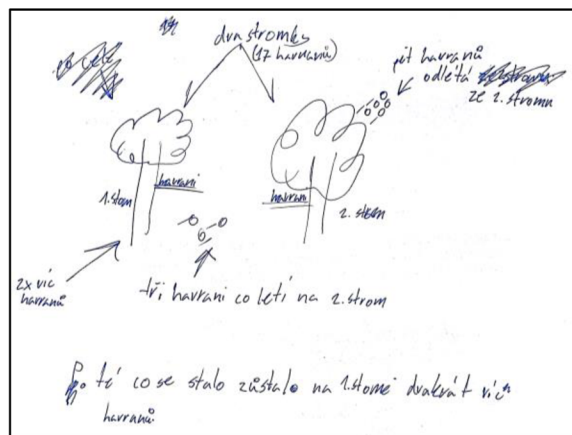 dva stromky
(17 havranů)
pět havranů
odletá
ze 2. stromu
havrani
1. stom
havrani
2. strom
2x víc
havranů
tři havrani co letí na 2. strom
Po té co se stalo zůstalo na 1. stomě dvakrát víc
havranů